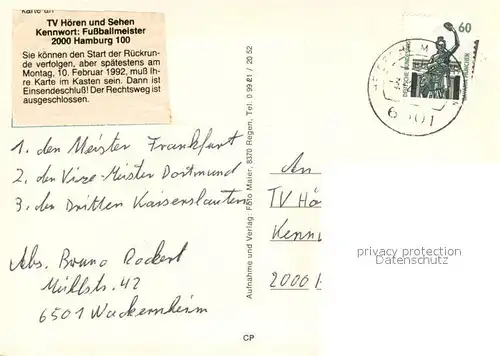 Karte an
TV Hören und Sehen
Kennwort: Fußballmeister
2000 Hamburg 100
Sie können den Start der Rückrun-
de verfolgen, aber spätestens am
Montag, 10. Februar 1992, muß Ih-
re Karte im Kasten sein. Dann ist
Einsendeschluß! Der Rechtsweg ist
ausgeschlossen.
1. den Meister Frankfurt
2. den Vize-Meister Dortmund
3. den Dritten Kaiserslautern
Abs. Bruno Rockert
Mühlstr. 42
6501 Wackernheim
Aufnahme und Verlag: Foto Maier, 8370 Regen, Tel. 0 99 21 / 20 52
CP
60
DEUTSCHE BUNDESPOST
MÜNCHEN
6501
An
TV Hö
Kennw
2000 H
privacy protection
Datenschutz